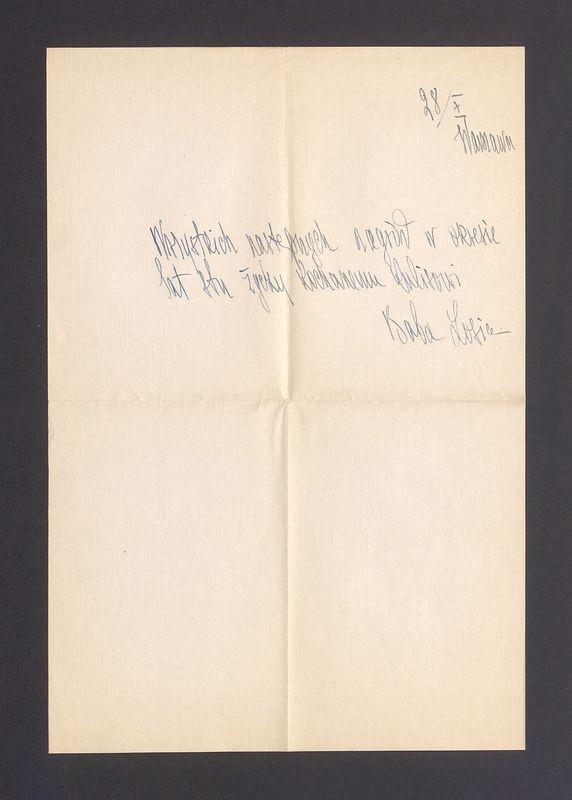 28/X
Warszawa
Wszystkich następnych nagród w okresie
lat stu życzy Kochanemu
Baba Zosia